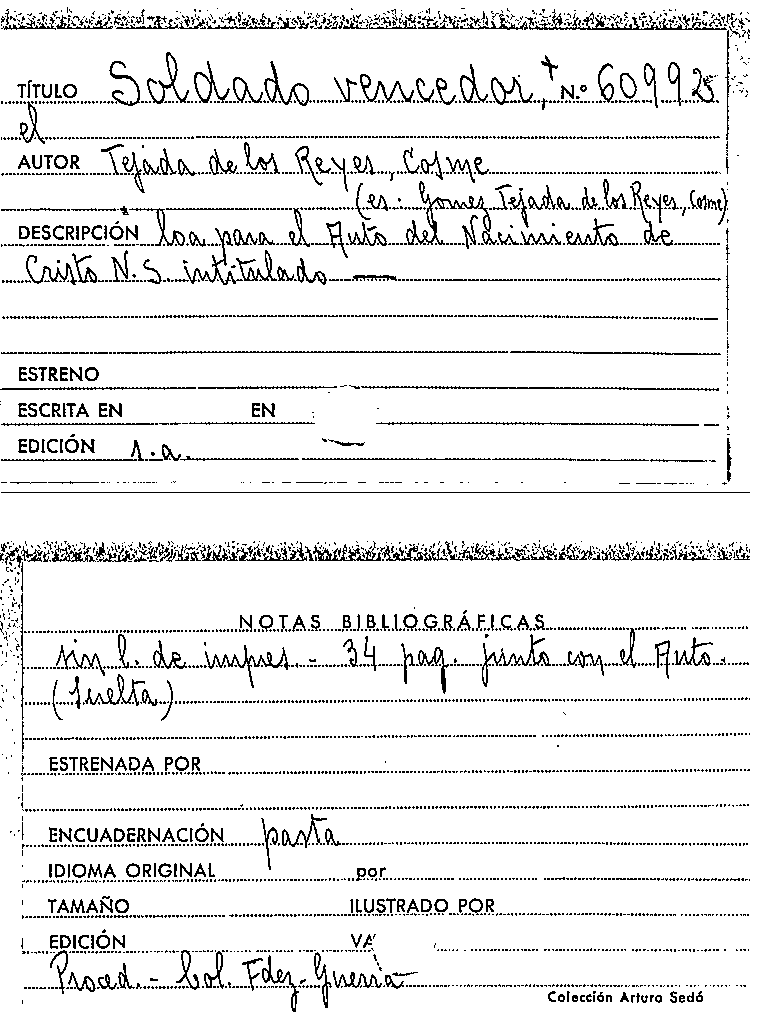 TÍTULO Soldado vencedor, + N.º 60992
el
AUTOR Tejada de los Reyes, Cosme
(es: Gomez Tejada de los Reyes, Cosme)
DESCRIPCIÓN * loa para el Auto del Nacimiento de
Cristo N. S. intitulado —
ESTRENO
ESCRITA EN EN
EDICIÓN s.a.
NOTAS BIBLIOGRÁFICAS
sin l. de impres - 34 pag. junto con el Auto.
(Suelta)
ESTRENADA POR
ENCUADERNACIÓN pasta
IDIOMA ORIGINAL por
TAMAÑO ILUSTRADO POR
EDICIÓN
Proced. - Col. Fdez-Guerra
Colección Arturo Sedó